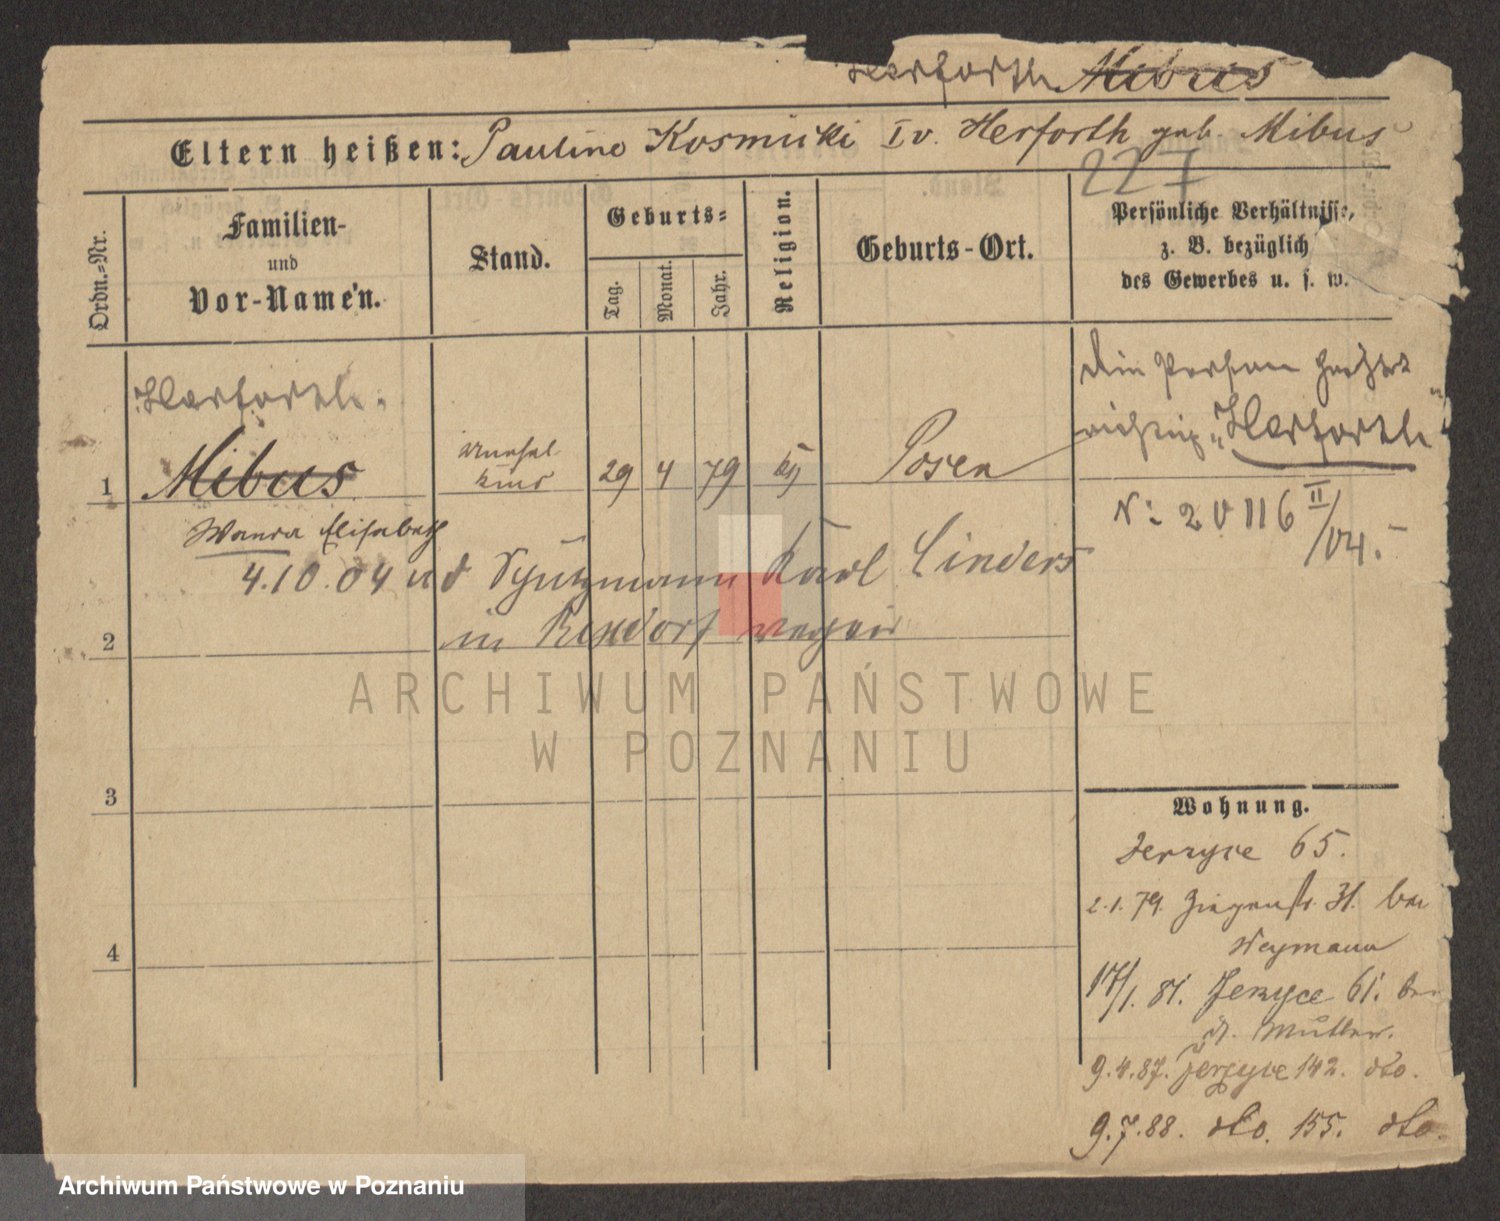 Herforth Mibus
Eltern heißen: Pauline Kosmicki I v. Herforth geb. Mibus
227
Ordn.-Nr.
Familien-
und
Vor-Namen.
Stand.
Geburts-
Tag.
Monat.
Jahr.
Religion.
Geburts-Ort.
Persönliche Verhältnisse,
z. B. bezüglich
des Gewerbes u. s. w.
Herforth
Die Person heißt
richtig „Herforth"
1 Mibus 29 4 79 Posen
Wanda Elisabeth
N: 20116 II/04.
4.10.04 Schutzmann Karl Linders
2 in Rixdorf
3
4
Wohnung.
Jerzyce 65.
2.1.79. Ziegenstr. 31. bei
Weymann
17/1. 81. Jerzyce 61. bei
d. Mutter.
9.4.87. Jerzyce 142. dto.
9.7.88. dto. 155. dto.
ARCHIWUM PAŃSTWOWE
W POZNANIU
Archiwum Państwowe w Poznaniu